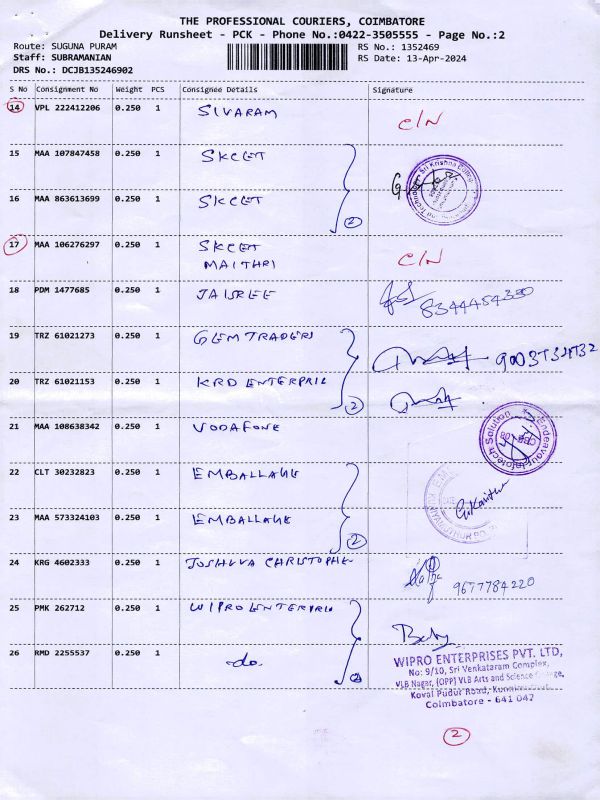 THE PROFESSIONAL COURIERS, COIMBATORE
Delivery Runsheet - PCK - Phone No.:0422-3505555 - Page No.:2
Route: SUGUNA PURAM
RS No.: 1352469
Staff: SUBRAMANIAN
RS Date: 13-Apr-2024
DRS No.: DCJB135246902
S No Consignment No Weight PCS Consignee Details Signature
14 VPL 222412206 0.250 1 SIVARAM C/N
15 MAA 107847458 0.250 1 SKCET
16 MAA 863613699 0.250 1 SKCET
2
17 MAA 106276297 0.250 1 SKCET C/N
MAITHRI
18 PDM 1477685 0.250 1 JAISREE
19 TRZ 61021273 0.250 1 GEM TRADERS
20 TRZ 61021153 0.250 1 KRD ENTERPRIL
2
21 MAA 108638342 0.250 1 VODAFONE
Endeavour Infotech Solution
22 CLT 30232823 0.250 1 EMBALLAGE
23 MAA 573324103 0.250 1 EMBALLAGE
2
24 KRG 4602333 0.250 1 JOSHUVA CHRISTOPHE
9677784220
25 PMK 262712 0.250 1 WIPRO ENTERPRIL
26 RMD 2255537 0.250 1 -do-
2
WIPRO ENTERPRISES PVT. LTD,
No: 9/10, Sri Venkataram Complex,
VLB Nagar, (OPP) VLB Arts and Science
Koval Pudur Road,
Coimbatore - 641 042
2